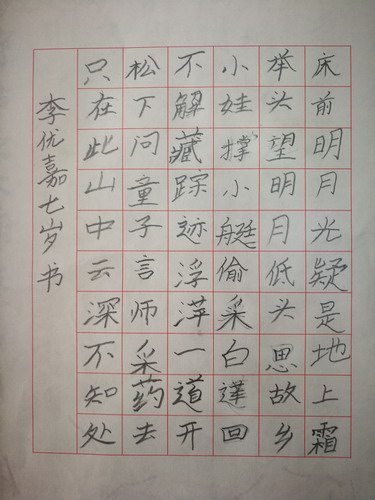 床前明月光疑是地上霜
举头望明月低头思故乡
小娃撑小艇偷采白莲回
不解藏踪迹浮萍一道开
松下问童子言师采药去
只在此山中云深不知处
李优嘉七岁书